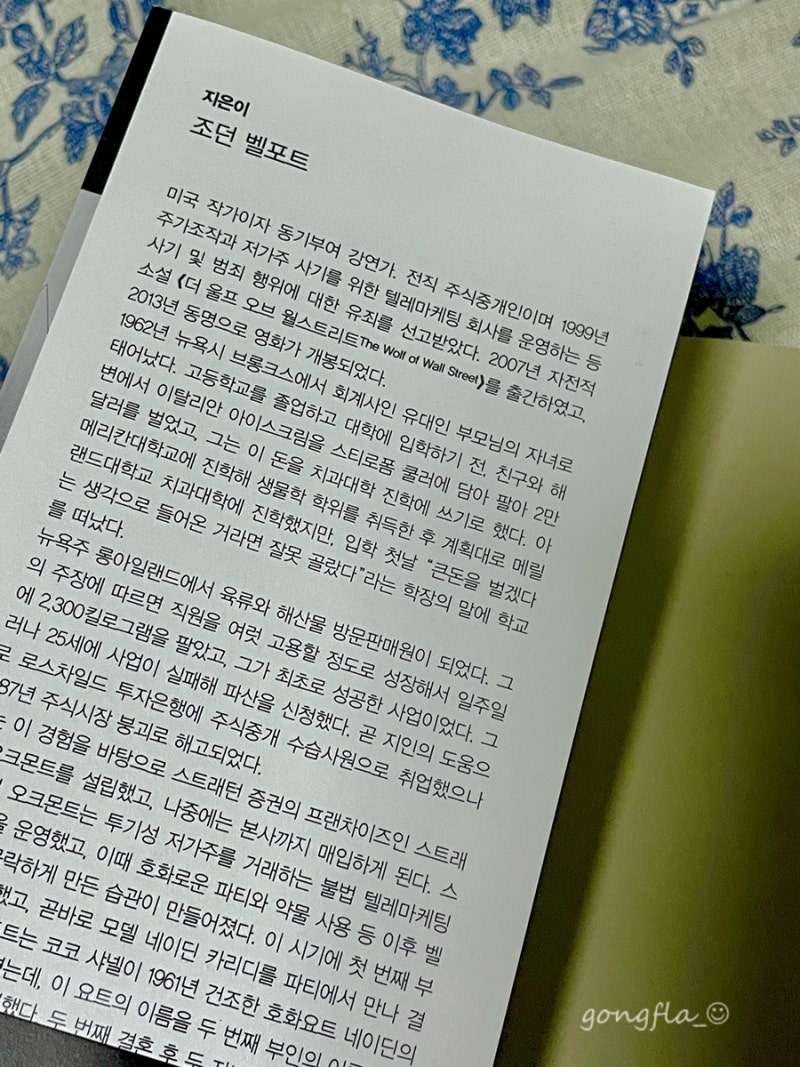 지은이
조던 벨포트
미국 작가이자 동기부여 강연가. 전직 주식중개인이며 1999년
주가조작과 저가주 사기를 위한 텔레마케팅 회사를 운영하는 등
사기 및 범죄 행위에 대한 유죄를 선고받았다. 2007년 자전적
소설 《더 울프 오브 월스트리트The Wolf of Wall Street》를 출간하였고,
2013년 동명으로 영화가 개봉되었다.
1962년 뉴욕시 브롱크스에서 회계사인 유대인 부모님의 자녀로
태어났다. 고등학교를 졸업하고 대학에 입학하기 전, 친구와 해
변에서 이탈리안 아이스크림을 스티로폼 쿨러에 담아 팔아 2만
달러를 벌었고, 그는 이 돈을 치과대학 진학에 쓰기로 했다. 아
메리칸대학교에 진학해 생물학 학위를 취득한 후 계획대로 메릴
랜드대학교 치과대학에 진학했지만, 입학 첫날 “큰돈을 벌겠다
는 생각으로 들어온 거라면 잘못 골랐다”라는 학장의 말에 학교
를 떠났다.
뉴욕주 롱아일랜드에서 육류와 해산물 방문판매원이 되었다. 그
의 주장에 따르면 직원을 여럿 고용할 정도로 성장해서 일주일
에 2,300킬로그램을 팔았고, 그가 최초로 성공한 사업이었다. 그
러나 25세에 사업이 실패해 파산을 신청했다. 곧 지인의 도움으
로 로스차일드 투자은행에 주식중개 수습사원으로 취업했으나
87년 주식시장 붕괴로 해고되었다.
이 경험을 바탕으로 스트래턴 증권의 프랜차이즈인 스트래
오크몬트를 설립했고, 나중에는 본사까지 매입하게 된다. 스
오크몬트는 투기성 저가주를 거래하는 불법 텔레마케팅
을 운영했고, 이때 호화로운 파티와 약물 사용 등 이후 벨
락하게 만든 습관이 만들어졌다. 이 시기에 첫 번째 부
했고, 곧바로 모델 네이딘 카리디를 파티에서 만나 결
트는 코코 샤넬이 1961년 건조한 호화요트 네이딘의
는데, 이 요트의 이름을 두 번째 부인의
했다. 두 번째 결혼 후 두
gongfla_☺